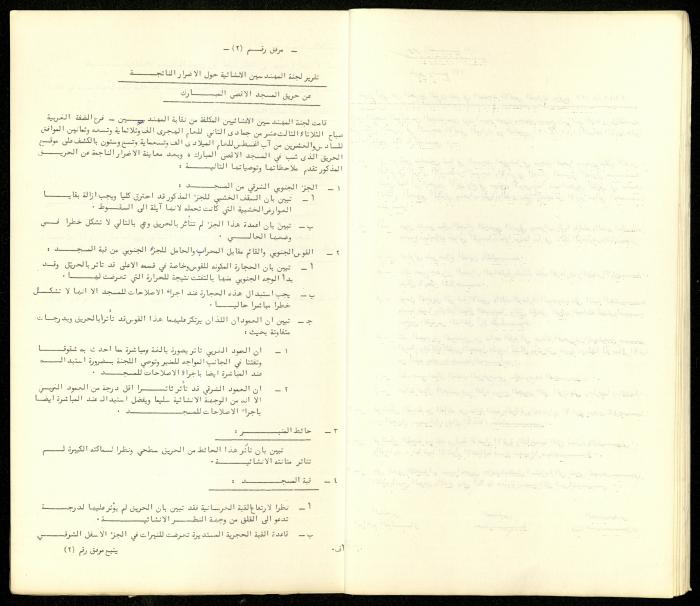 ـ مرفق رقــم (٢) ـ
تقرير لجنة المهندسين الانشائية حول الاضرار الناتجــــة
عن حريق المسجد الاقصى المبــــارك
قامت لجنة المهندسين الانشائيين المكلفة من نقابة المهندسـين ـ فرع الضفة الغربية
صباح الثلاثاء الثالث عشر من جمادى الثاني للعام الهجرى الف وثلاثماية وتسعة وثمانين الموافق
للسادس والعشرين من آب اغسطس للعام الميلادى الف وتسعماية وتسع وستون بالكشف على موقع
الحريق الذى شب في المسجد الاقصى المبارك ، وبعد معاينة الاضرار الناجمة عن الحريق
المذكور تقدم ملاحظاتها وتوصياتها التاليــة :
١ ـ الجزء الجنوبي الشرقي من المسجــــد :
أ ـ تبين بان السقف الخشبي للجزء المذكور قد احترق كليا ويجب ازالة بقايــا
العوارض الخشبية التي كانت تحمله لانها آيلة الى السقــوط .
ب ـ تبين بان اعمدة هذا الجزء لم تتأثر بالحريق وهي بالتالي لا تشكل خطرا فــي
وضعها الحالــي .
٢ ـ القوس الجنوبي والقائم مقابل المحراب والحامل للجزء الجنوبي من قبة المسجــد :
أ ـ تبين بان الحجارة المكونة للقوس وخاصة في قسمه الاعلى قد تاثر بالحريق وقــد
بدأ الوجه الجنوبي منها بالتفتت نتيجة للحرارة التي تعرضت لهــا .
ب ـ يجب استبدال هذه الحجارة عند اجراء الاصلاحات للمسجد الا انها لا تشكــل
خطرا مباشرا حاليــا .
جـ ـ تبين ان العمودان اللذان يرتكز عليهما هذا القوس قد تأثرا بالحريق وبدرجات
متفاوتة بحيث :
١ ـ ان العمود الغربي تاثر بصورة بالغة ومباشرة مما احدث به شقوقــا
وتفتتا في الجانب المواجه للمنبر وتوصي اللجنة بضرورة استبدالــه
عند المباشرة ايضا باجراء الاصلاحات للمسجــد .
٢ ـ ان العمود الشرقي قد تأثر تاثــرا اقل درجة من العمود الغربــي
الا انه من الوجهة الانشائية سليما ويفضل استبداله عند المباشرة ايضا
باجراء الاصلاحات للمسجــــد .
٣ ـ حائط المنبـــر :
تبين بان تأثر هذا الحائط من الحريق سطحي ونظرا لسماكته الكبيرة لــم
تتاثر متانته الانشائيــة .
٤ ـ قبة المسجــــد :
أ ـ نظرا لارتفاع القبة الخرسانية فقد تبين بان الحريق لم يؤثر عليها لدرجــة
تدعو الى القلق من وجهة النظــر الانشائيــة .
ب ـ قاعدة القبة الحجرية المستديرة تعرضت للنيرات في الجزء الاسفل الشرقــي
يتبع مرفق رقم (٢)